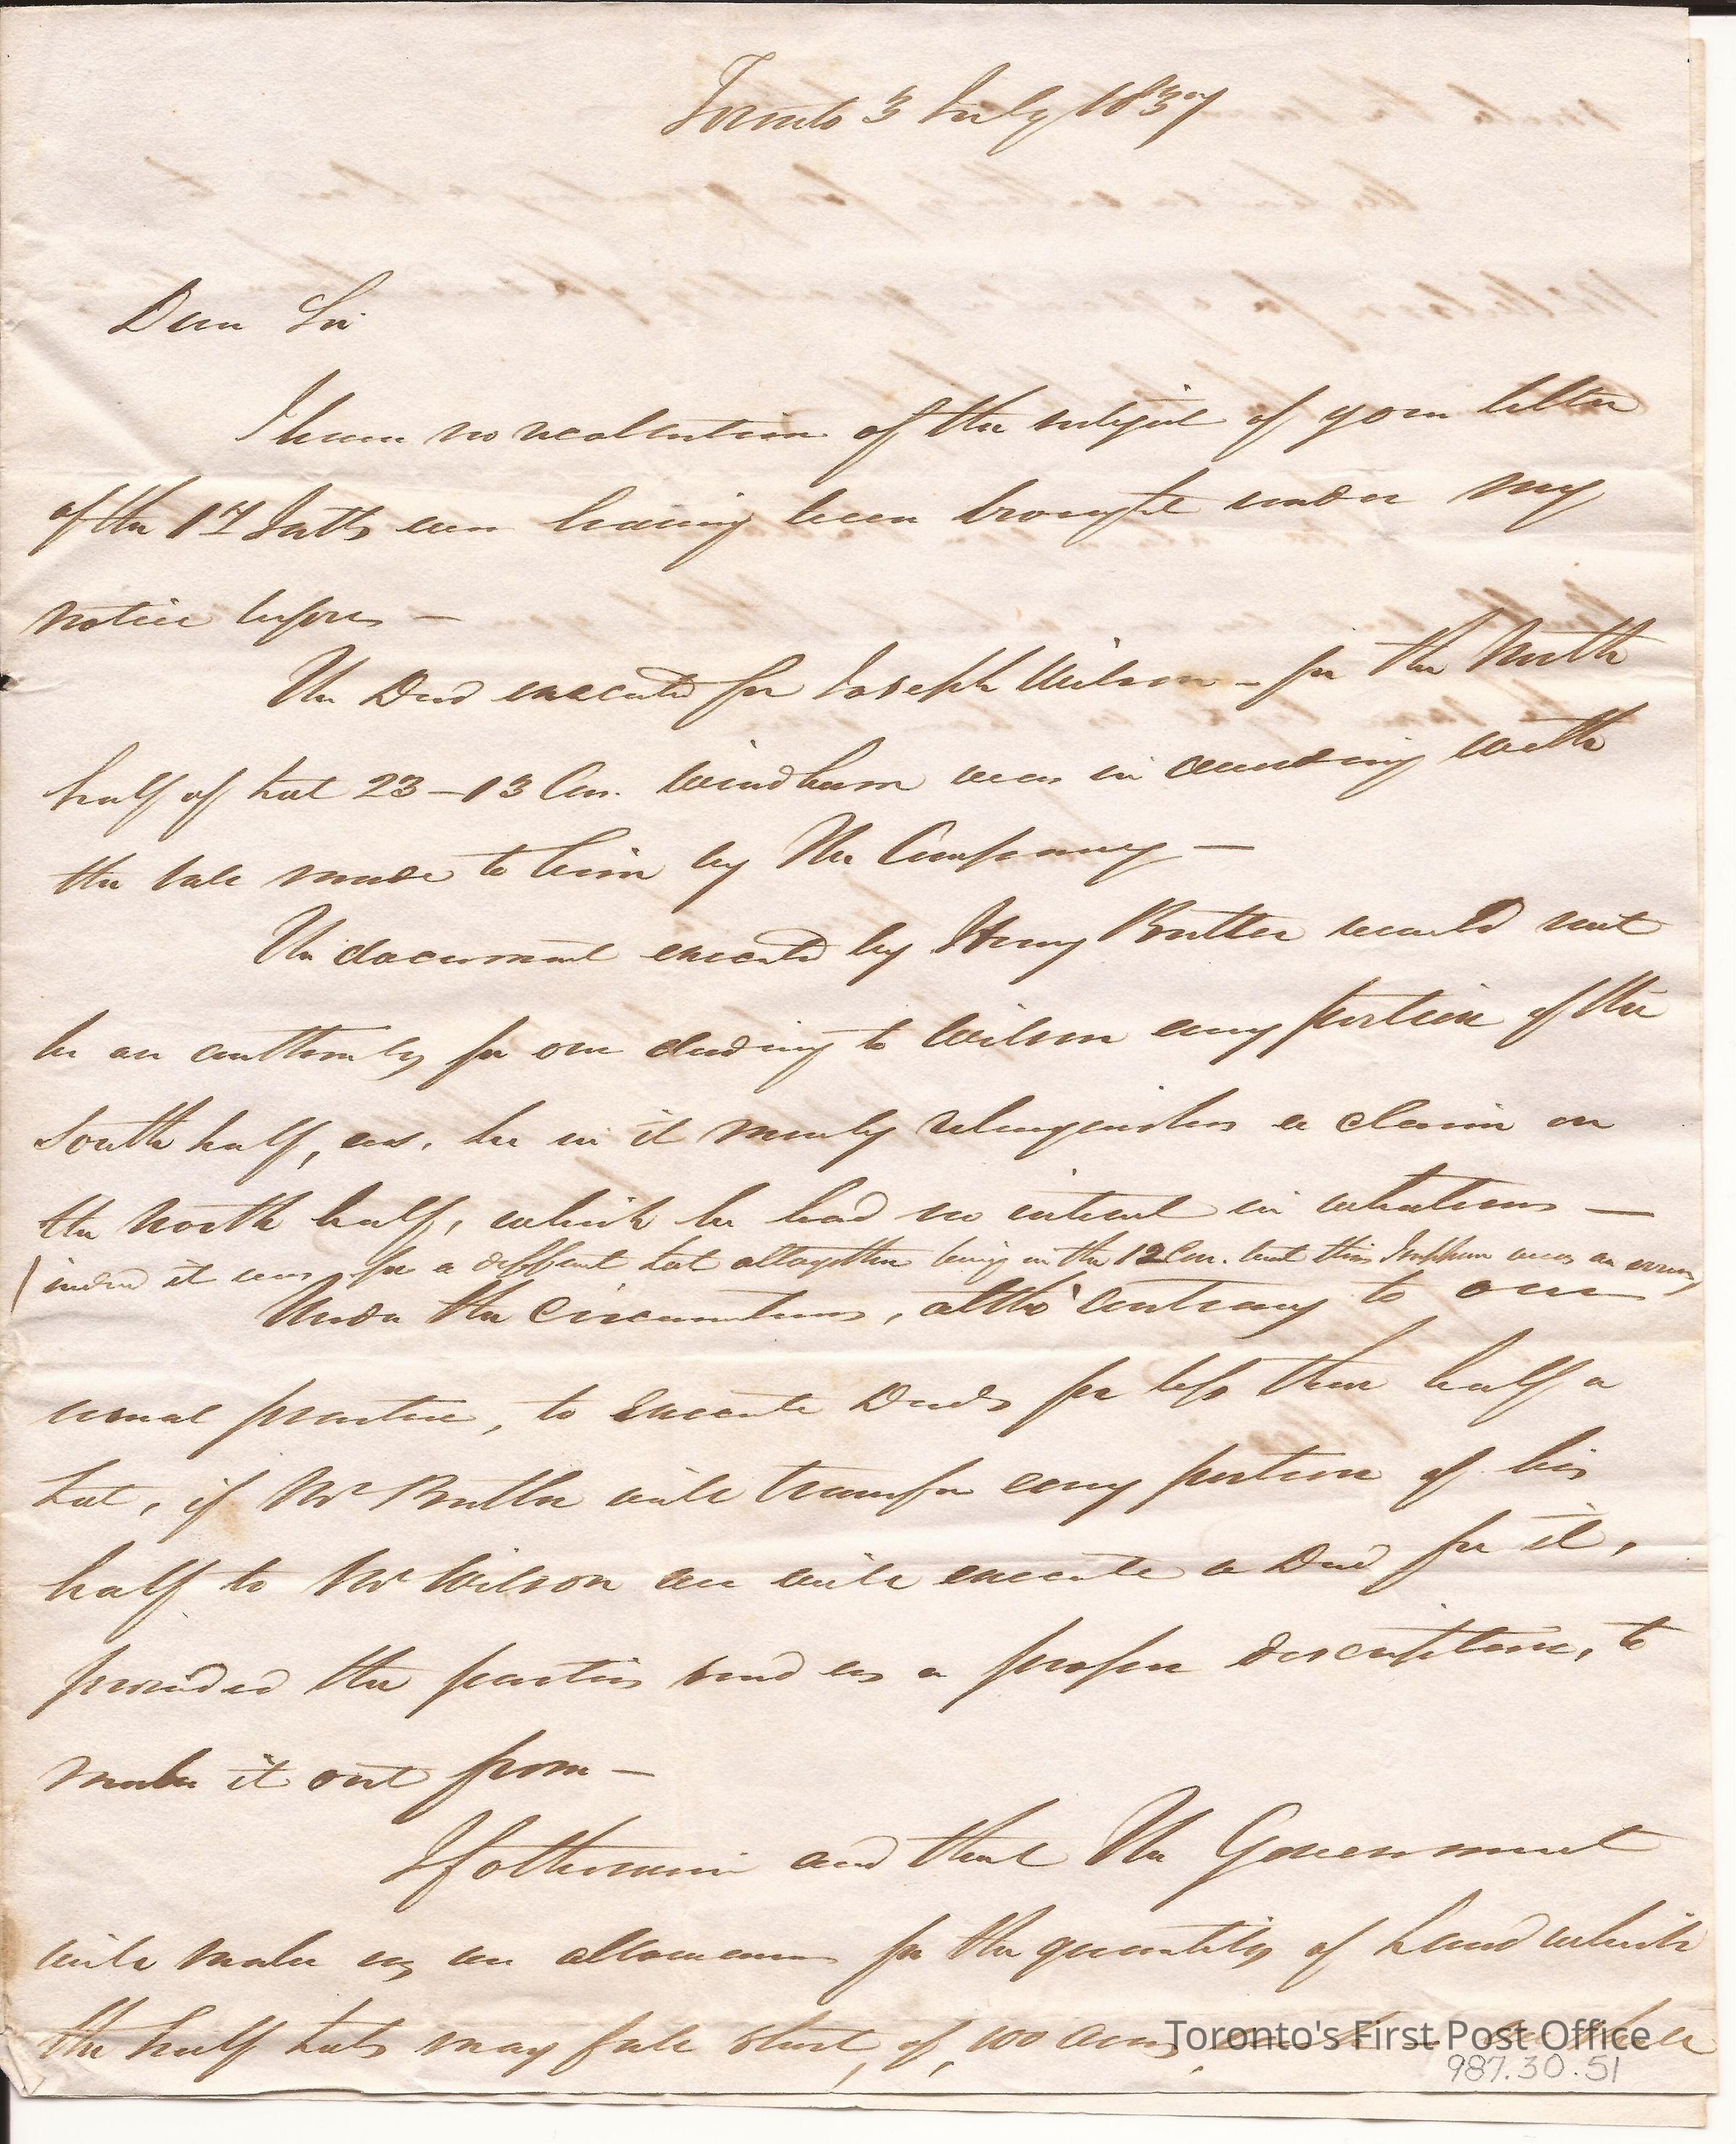 Toronto 3 July 1837
Dear Sir
I have no recollection of the subject of your letter
of the 17 having been brought under my
notice before —
The Deed executed for Joseph Wilson – for the North
half of Lot 23 – 13 Con. Windham was in accordance with
the sale made to him by The Company —
The document executed by Henry Butler would not
be an authority for our deeding to Wilson any portion of the
South half, as, he in it merely relinquishes a claim on
the North half, which he had no interest in whatever —
(indeed it was for a different Lot altogether being in the 12 Con. but this I suppose was an error)
Under the circumstances, altho' contrary to our
usual practice, to execute Deeds for less than half a
Lot, if Mr Butler will transfer any portion of his
half to Mr Wilson we will execute a Deed for it,
provided the parties send us a proper description, to
make it out from —
If otherwise and that The Government
will make us an allowance for the quantity of Land which
the half Lots may fall short, of, 100 acres,
Toronto's First Post Office
987.30.51